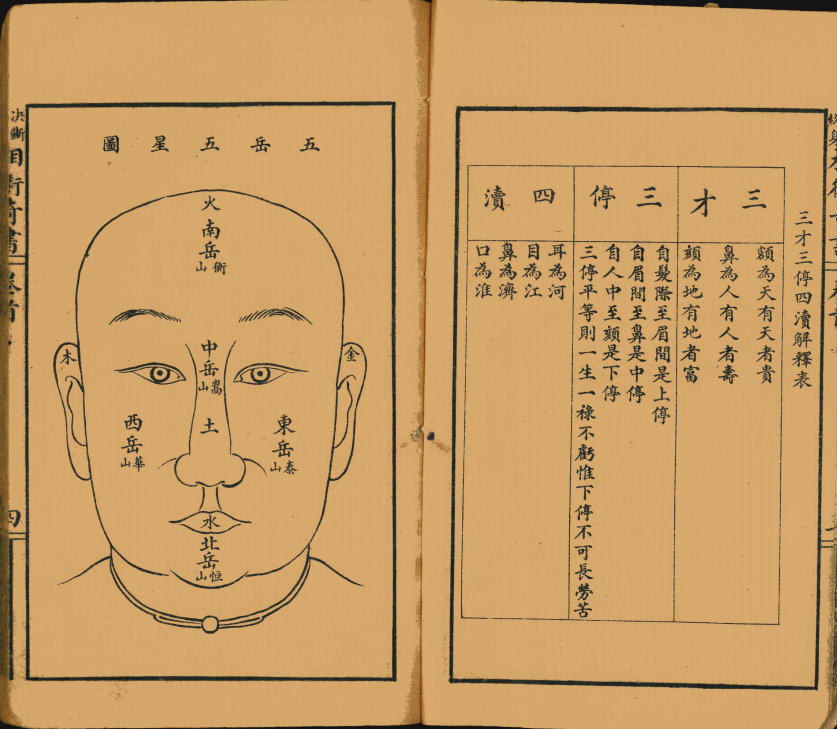 三才三停四瀆解釋表
三才
額為天有天者貴
鼻為人有人者壽
頦為地有地者富
三停
自髮際至眉間是上停
自眉間至鼻是中停
自人中至頦是下停
三停平等則一生一祿不虧惟下停不可長勞苦
四瀆
耳為河
目為江
鼻為濟
口為淮
五岳五星圖
火
南岳
衡山
中岳
嵩山
土
金
木
東岳
泰山
西岳
華山
水
北岳
恒山
決斷
相術奇書
卷首
四